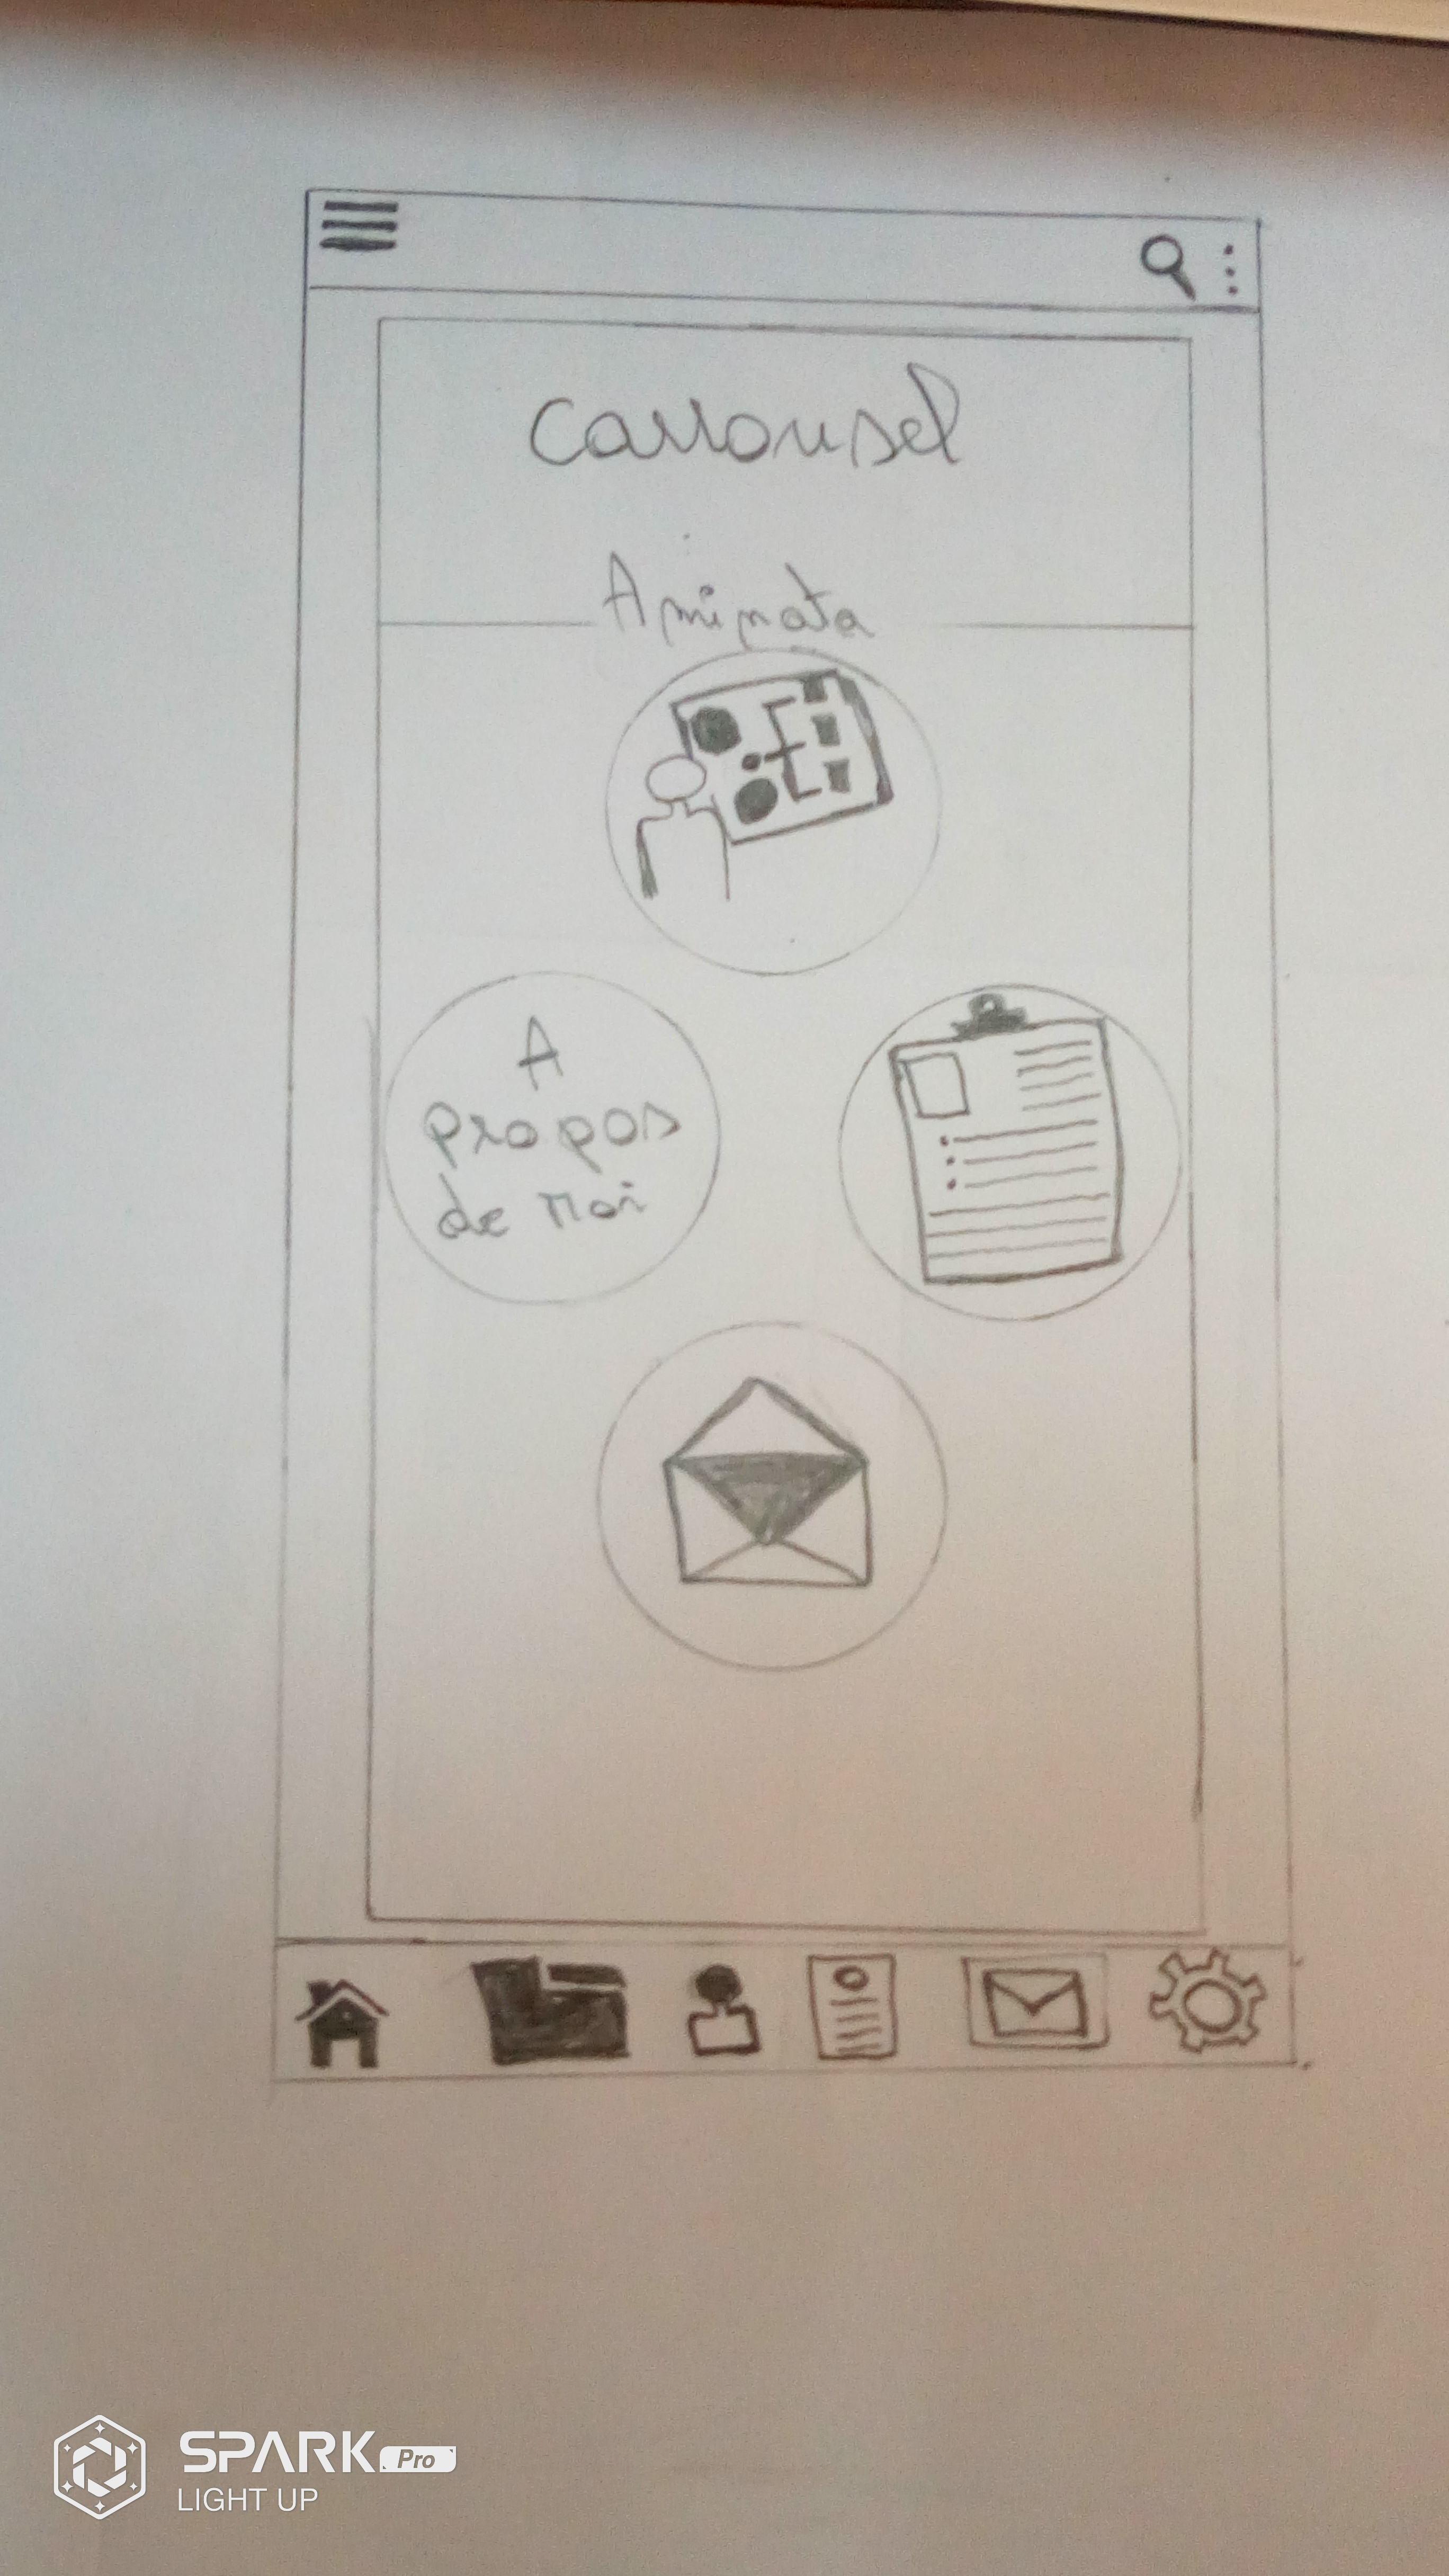 Carrousel
Aminata
A
propos
de Moi
SPARK Pro
LIGHT UP